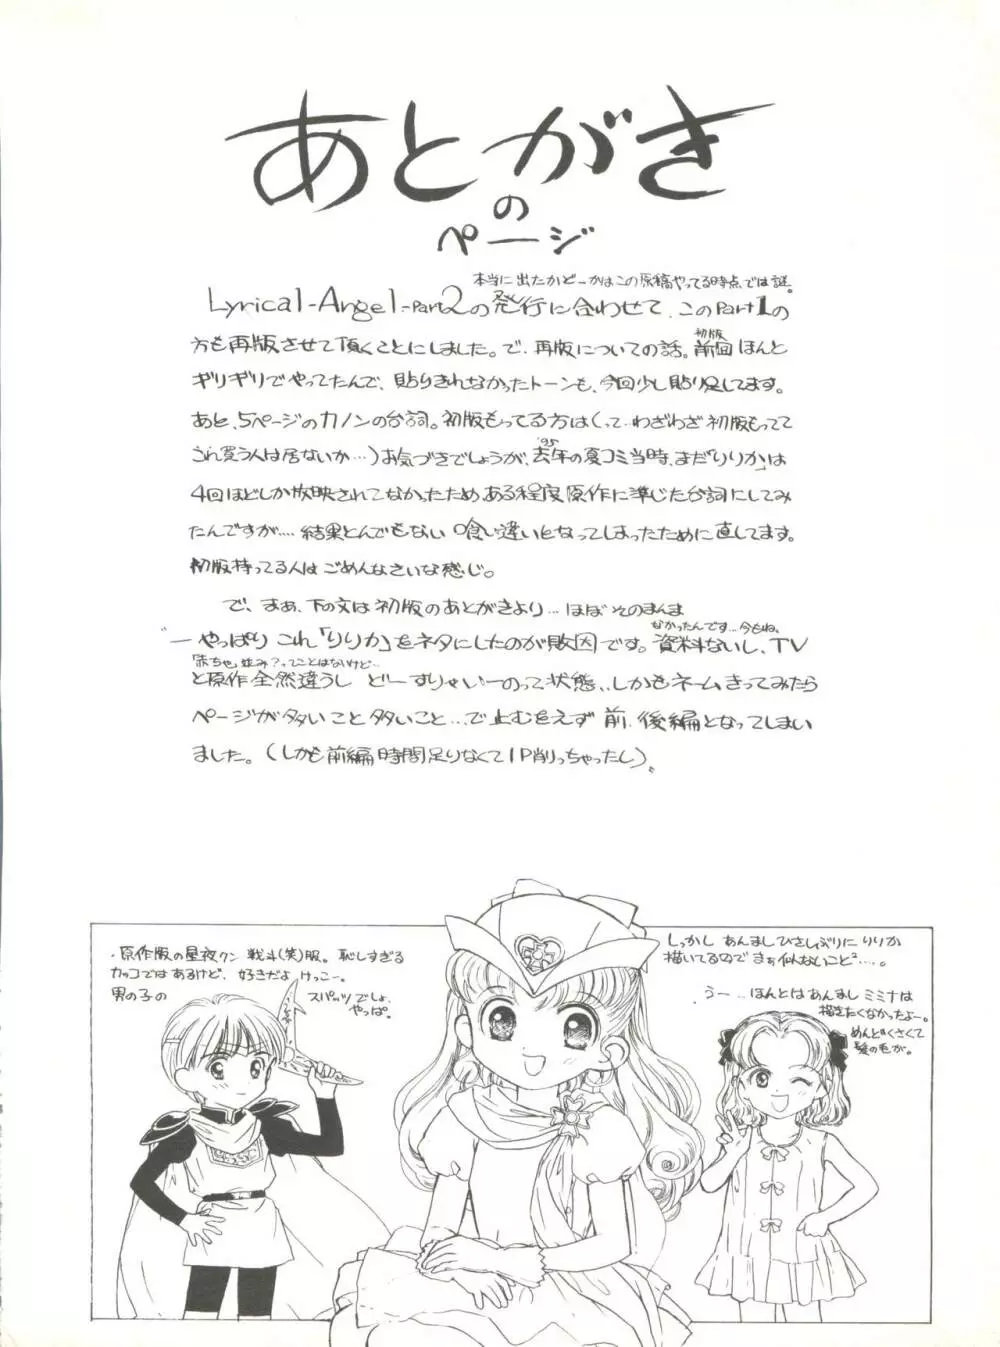 あとがき
の
ページ
本当に出たかどーかはこの原稿やってる時点では謎。
Lyrical-Angel-Part2の発行に合わせて、このPart1の
方も再版させて頂くことにしました。で、再版についての話。前回ほんと
初版
ギリギリでやってたんで、貼りきれなかったトーンも、今回少し貼り足してます。
あと、5ページのカノンの台詞。初版もってる方は(って…わざわざ初版もってて
これ買う人は居ないか…)お気づきでしょうが、去年の夏コミ当時、まだ「りりか」は
'95
4回ほどしか放映されてなかったため ある程度 原作に準じた台詞にしてみ
たんですが…. 結果とんでもない 喰い違いとなってしまったために直してます。
初版持ってる人は ごめんなさいな感じ。
で、まあ、下の文は初版のあとがきより… ほぼ そのまんま
"ーやっぱり これ「りりか」をネタにしたのが敗因です。資料ないし、TV
なかったんです…今もね。
「赤ちゃ」並み?ってことはないけど…
と原作全然違うし どーすりゃいーのって状態、、しかもネームきってみたら
ページが多いこと多いこと…で止むをえず 前、後編となってしまい
ました。(しかも前編時間足りなくて1P削っちゃったし)"
・原作版の星夜クン 戦斗(笑)服。恥しすぎる
カッコではあるけど、好きだよ けっこー。
男の子の
スパッツでしょ、
やっぱ。
しっかし あんまし ひさしぶりに りりか
描いてるので まぁ 似ないこと²….。
うー… ほんとは あんまし ミミナは
描きたくなかったよー。
めんどくさくて
髪の毛が。